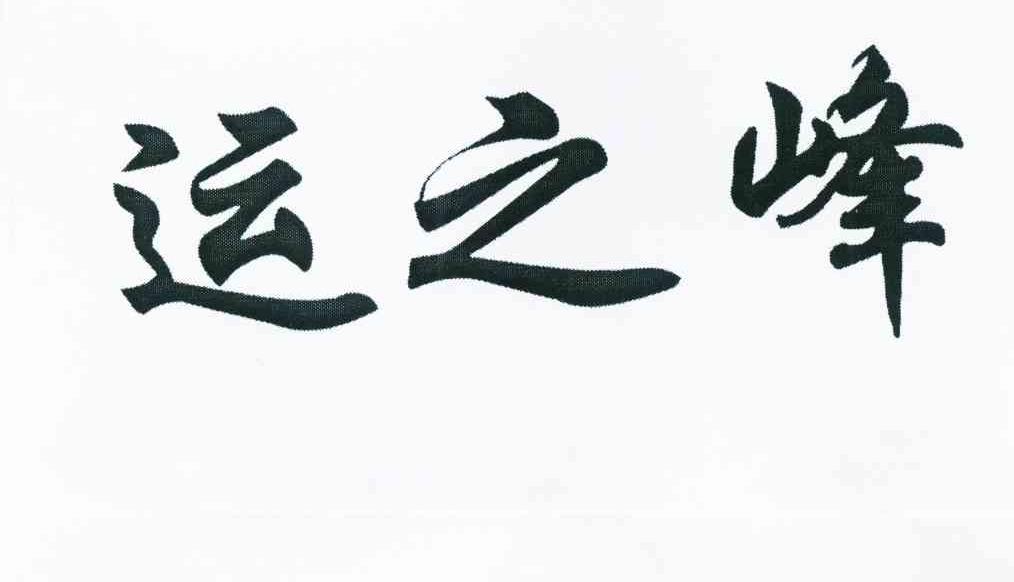 运之峰